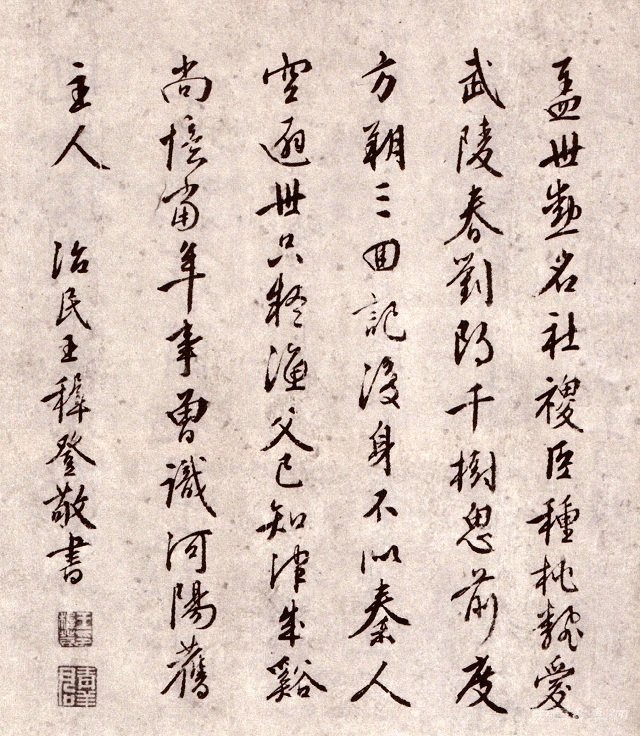 蓋世勳名社稷臣種桃愛
武陵春劉郎千樹思前度
方朔三回記後身不似秦人
空避世只疑漁父已知津成蹊
尚憶當年事曾識河陽舊
主人 治民王穉登敬書